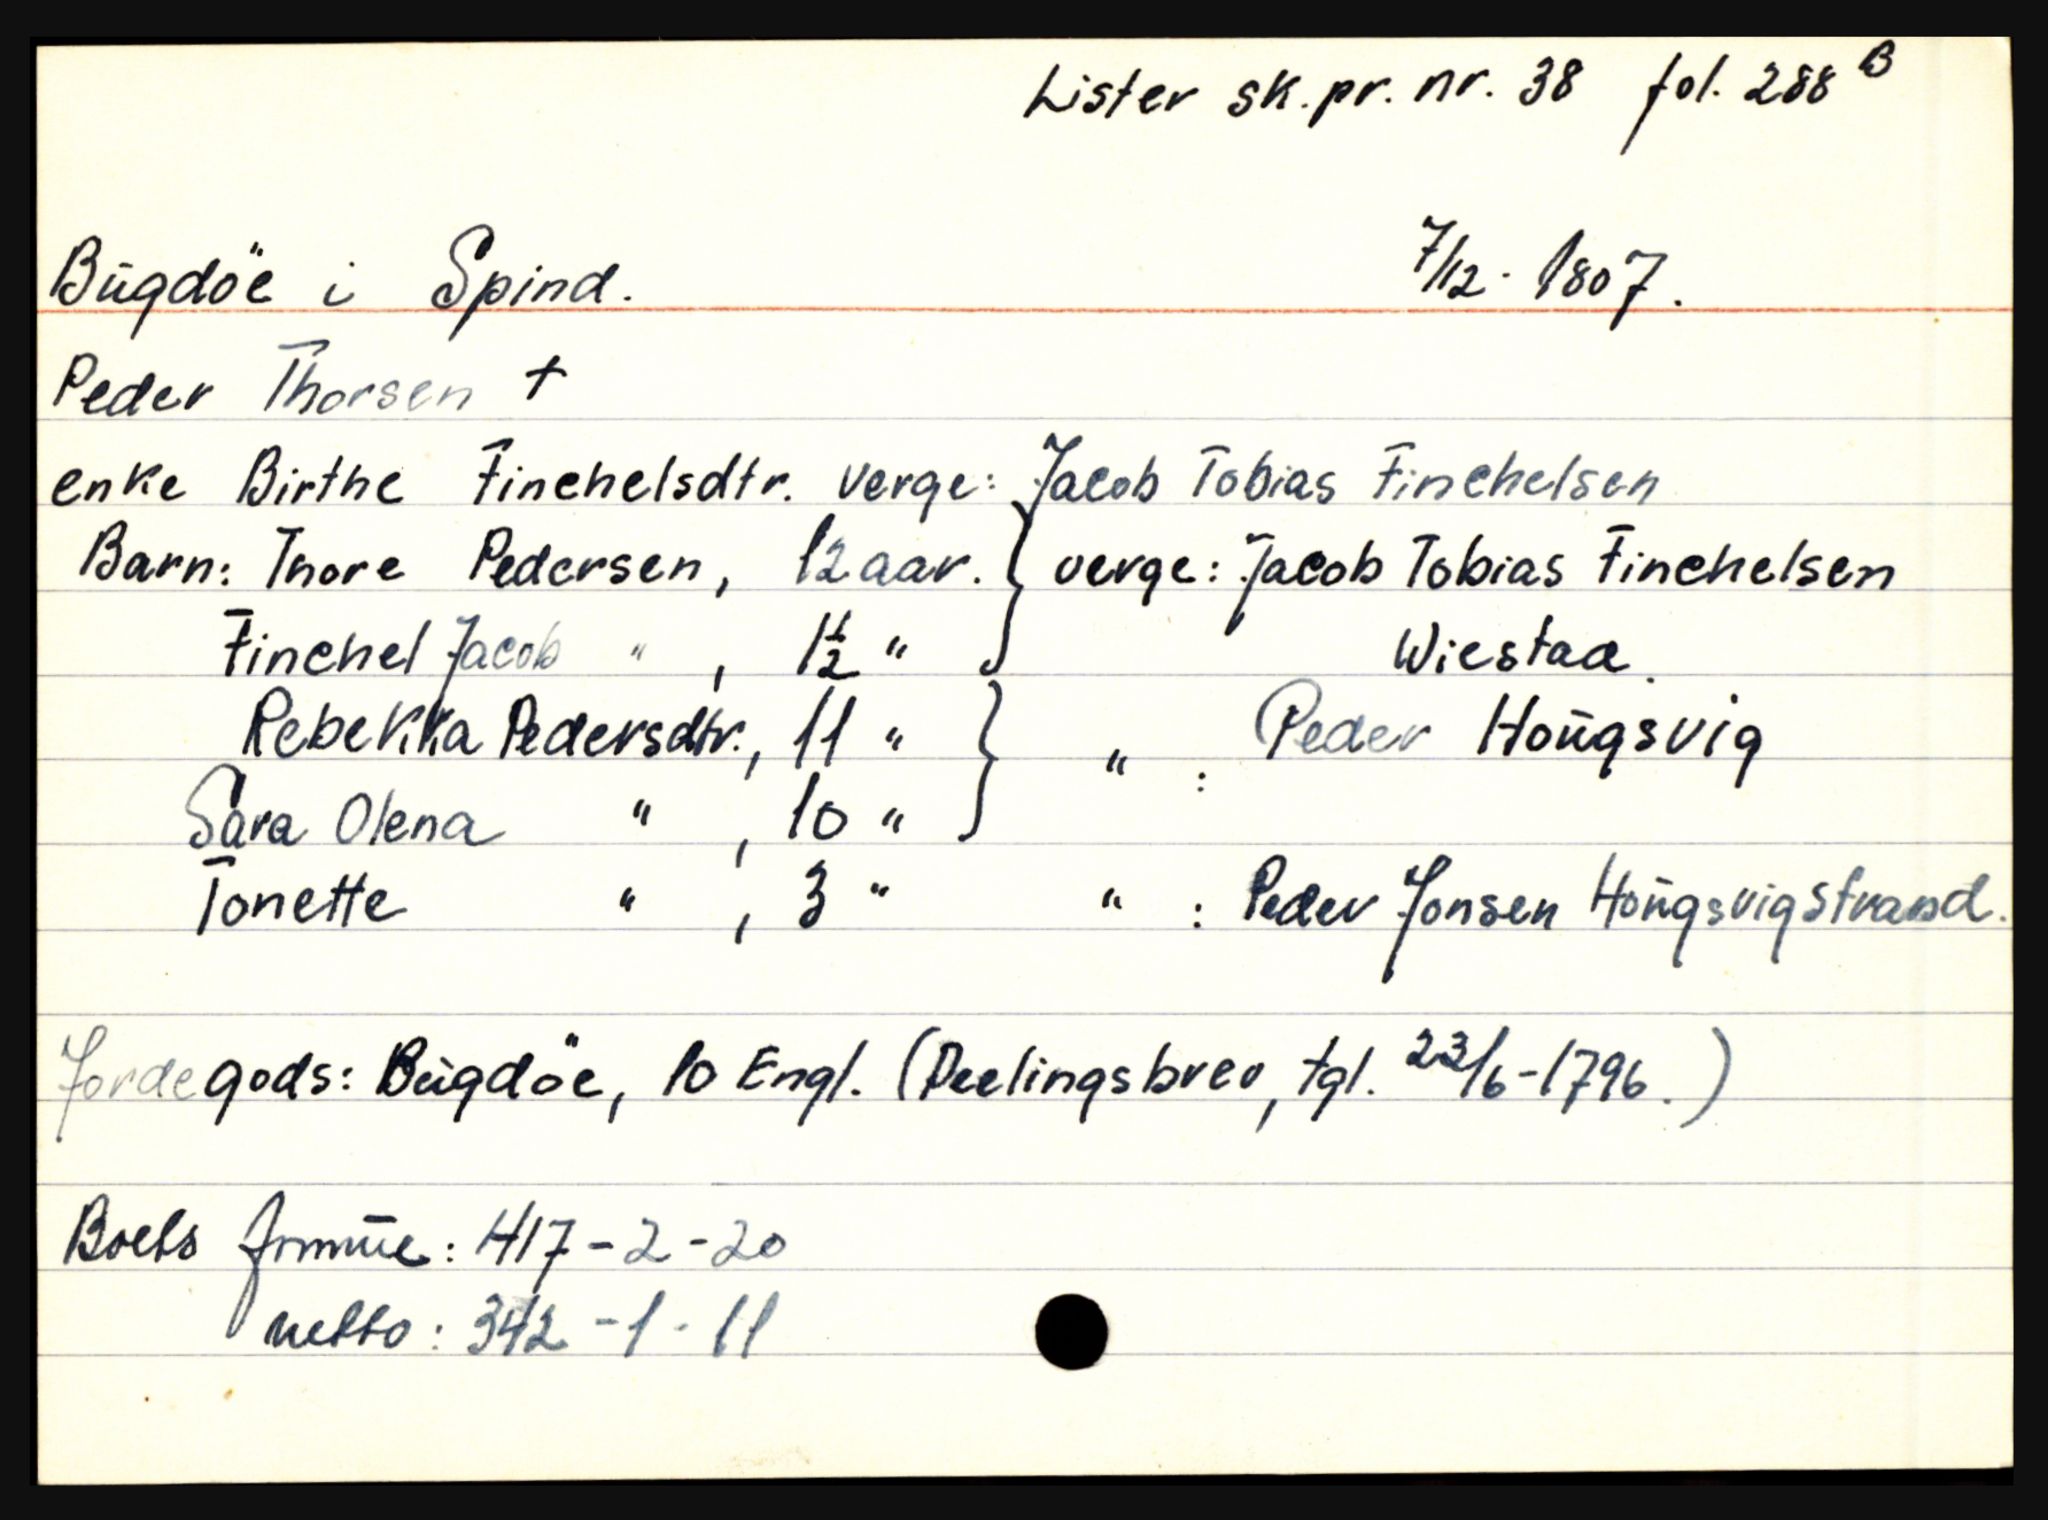 Lister sk.pr. nr. 38 fol. 288 B
Bügdöe i Spind. 7/12 - 1807.
Peder Thorsen †
enke Birthe Finchelsdtr. verge: Jacob Tobias Finchelsen
Barn: Thore Pedersen, 12 aar. } verge: Jacob Tobias Finchelsen
Finchel Jacob " , 1½ " } Wiestad.
Rebekka Pedersdtr., 11 " } " : Peder Hoügsvig
Sara Olena " , 10 " }
Tonette " , 3 " " : Peder Jonsen Hoügsvigstrand.
Jordegods: Bügdöe, 10 Engl. (Deelingsbrev, tgl. 23/6-1796.)
Boets formüe: 417-2-20
netto: 342-1-11